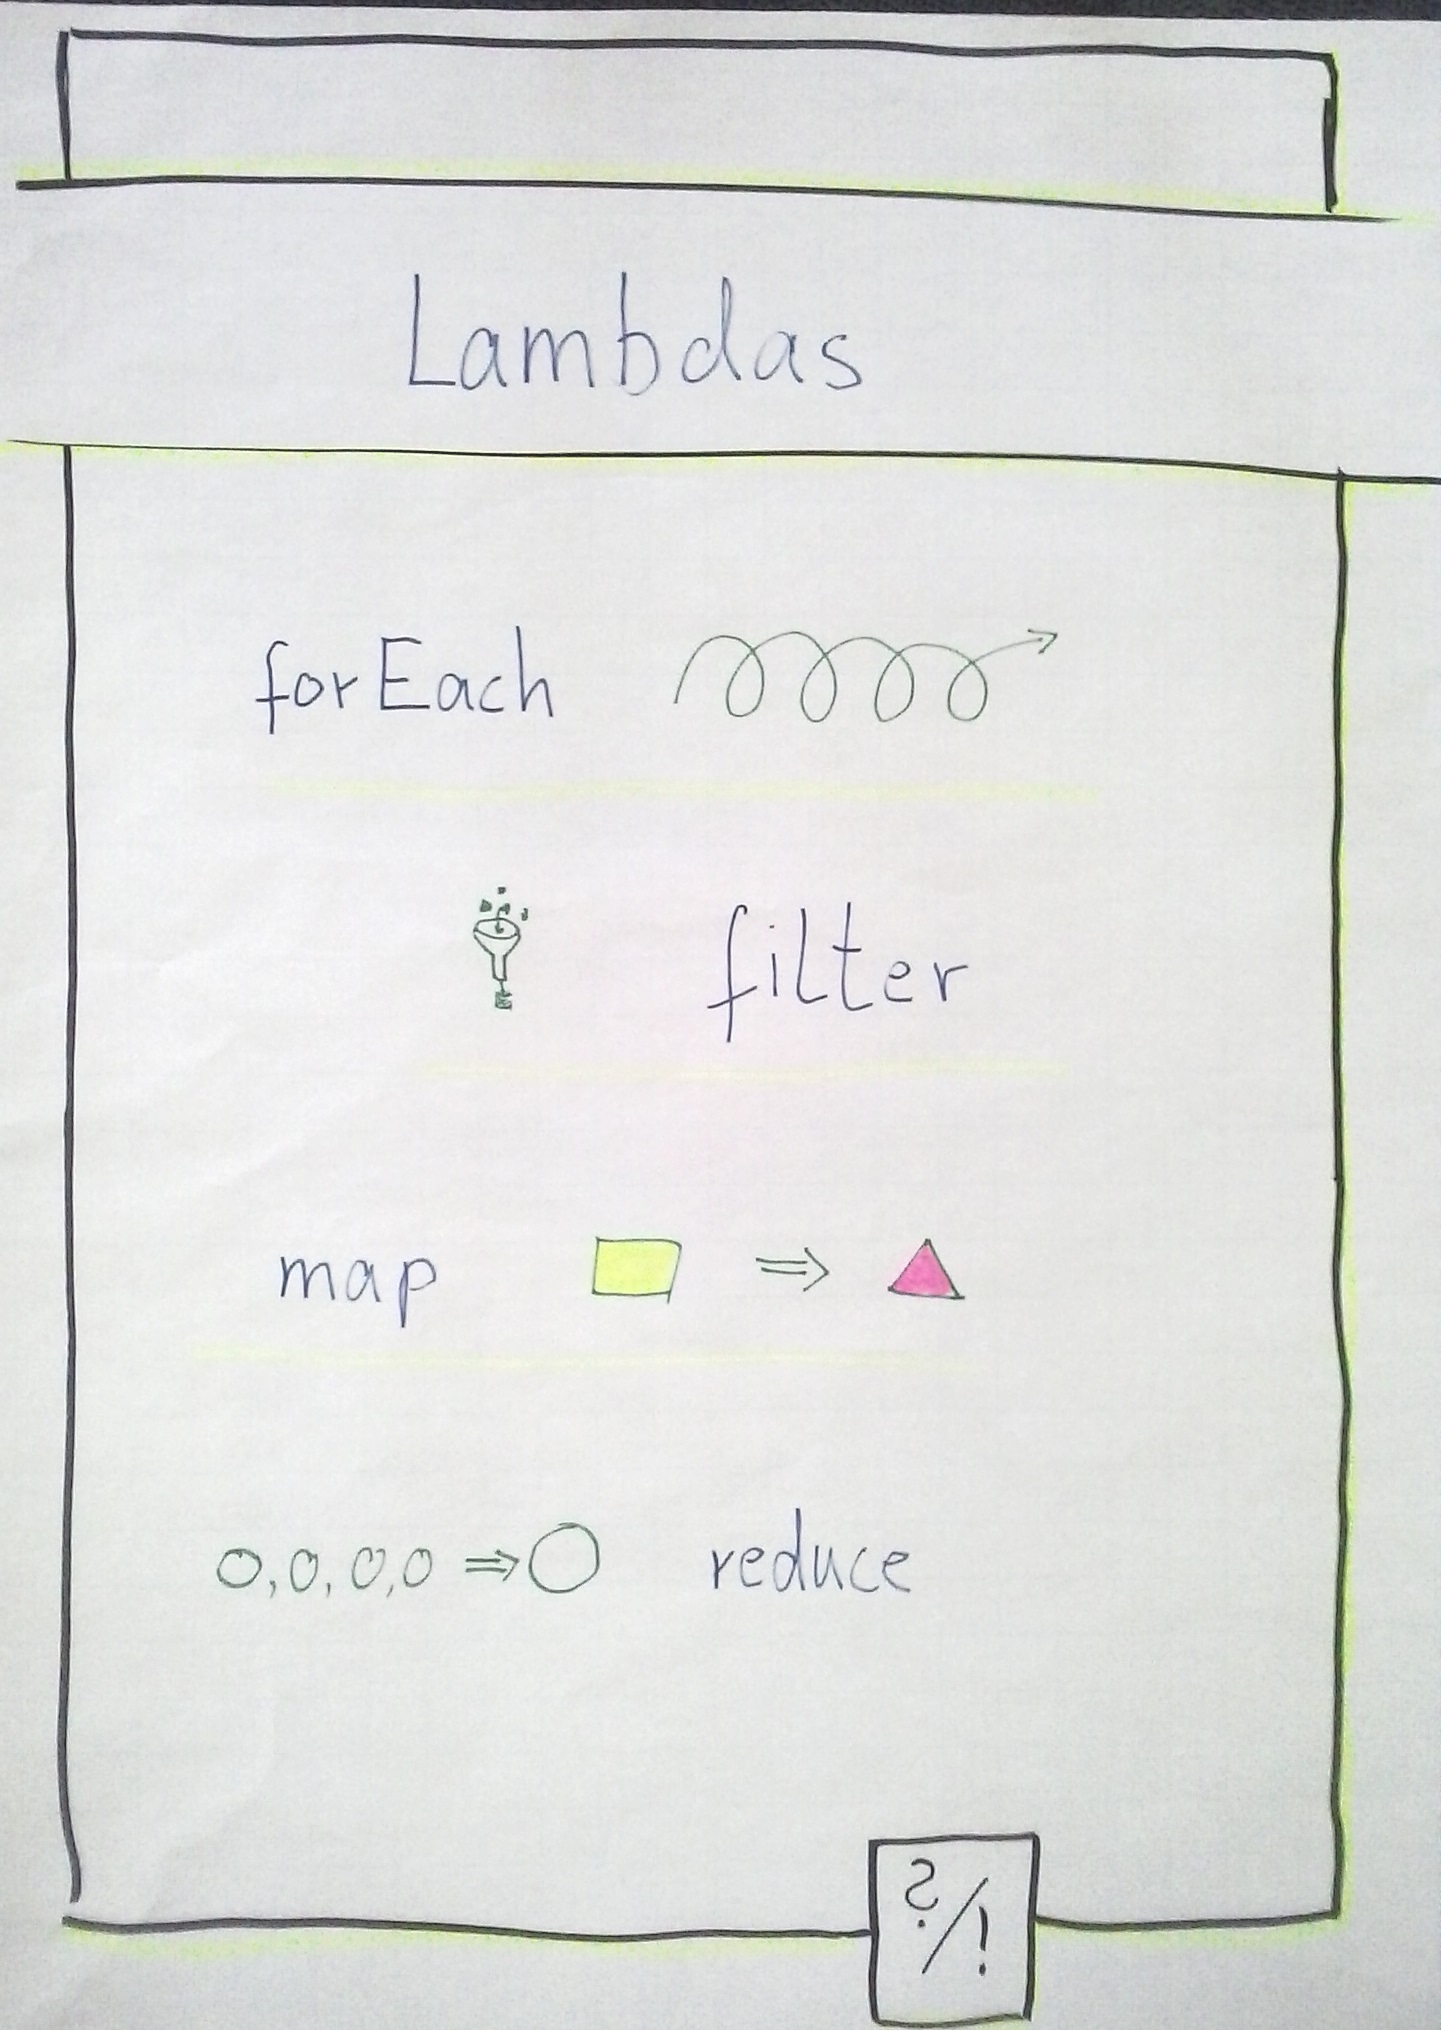 Lambdas
forEach
filter
map ⇒
0,0,0,0 ⇒ O reduce
?/!